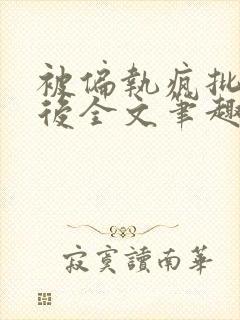 被偏執瘋批
後全文筆趣
寂寞讀南華